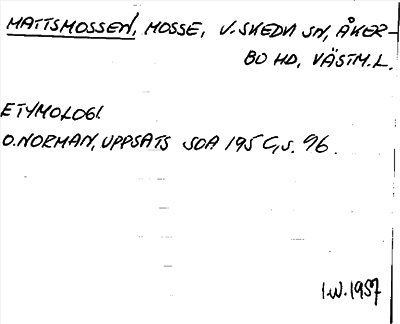 MATTSMOSSEN, MOSSE, V. SKEDVI SN, ÅKER-
BO HD, VÄSTM.L.
ETYMOLOGI.
O. NORMAN, UPPSATS SOA 195 C, s. 96.
I.W. 1957